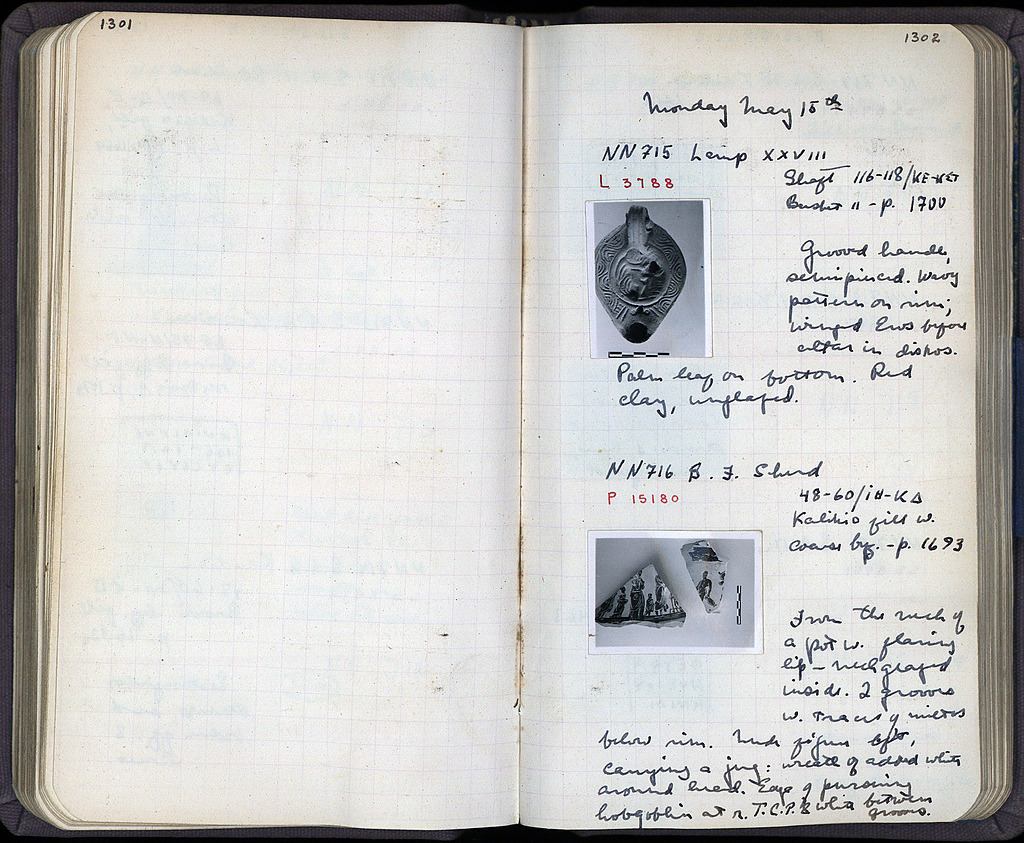 1301
1302
Monday May 15th
NN 715 Lamp XXVIII
L 3788
Shaft 116-118/ΚΕ-
Basket 11 - p. 1700
Grooved handle,
semipierced. Wavy
pattern on rim;
winged Eros before
altar in diskos.
Palm leaf on bottom. Red
clay, unglazed.
NN 716 B. F. Sherd
P 15180
48-60/ΙΗ-ΚΔ
Kalikio fill w.
coarse bf. - p. 1693
From the neck of
a pot w. flaring
lip - neck glazed
inside. 2 grooves
w. traces of miltos
below rim. Nude figure left,
carrying a jug: wreath of added white
around head. Edge of pursuing
hobgoblin at r. T.C.P. white between
grooves.